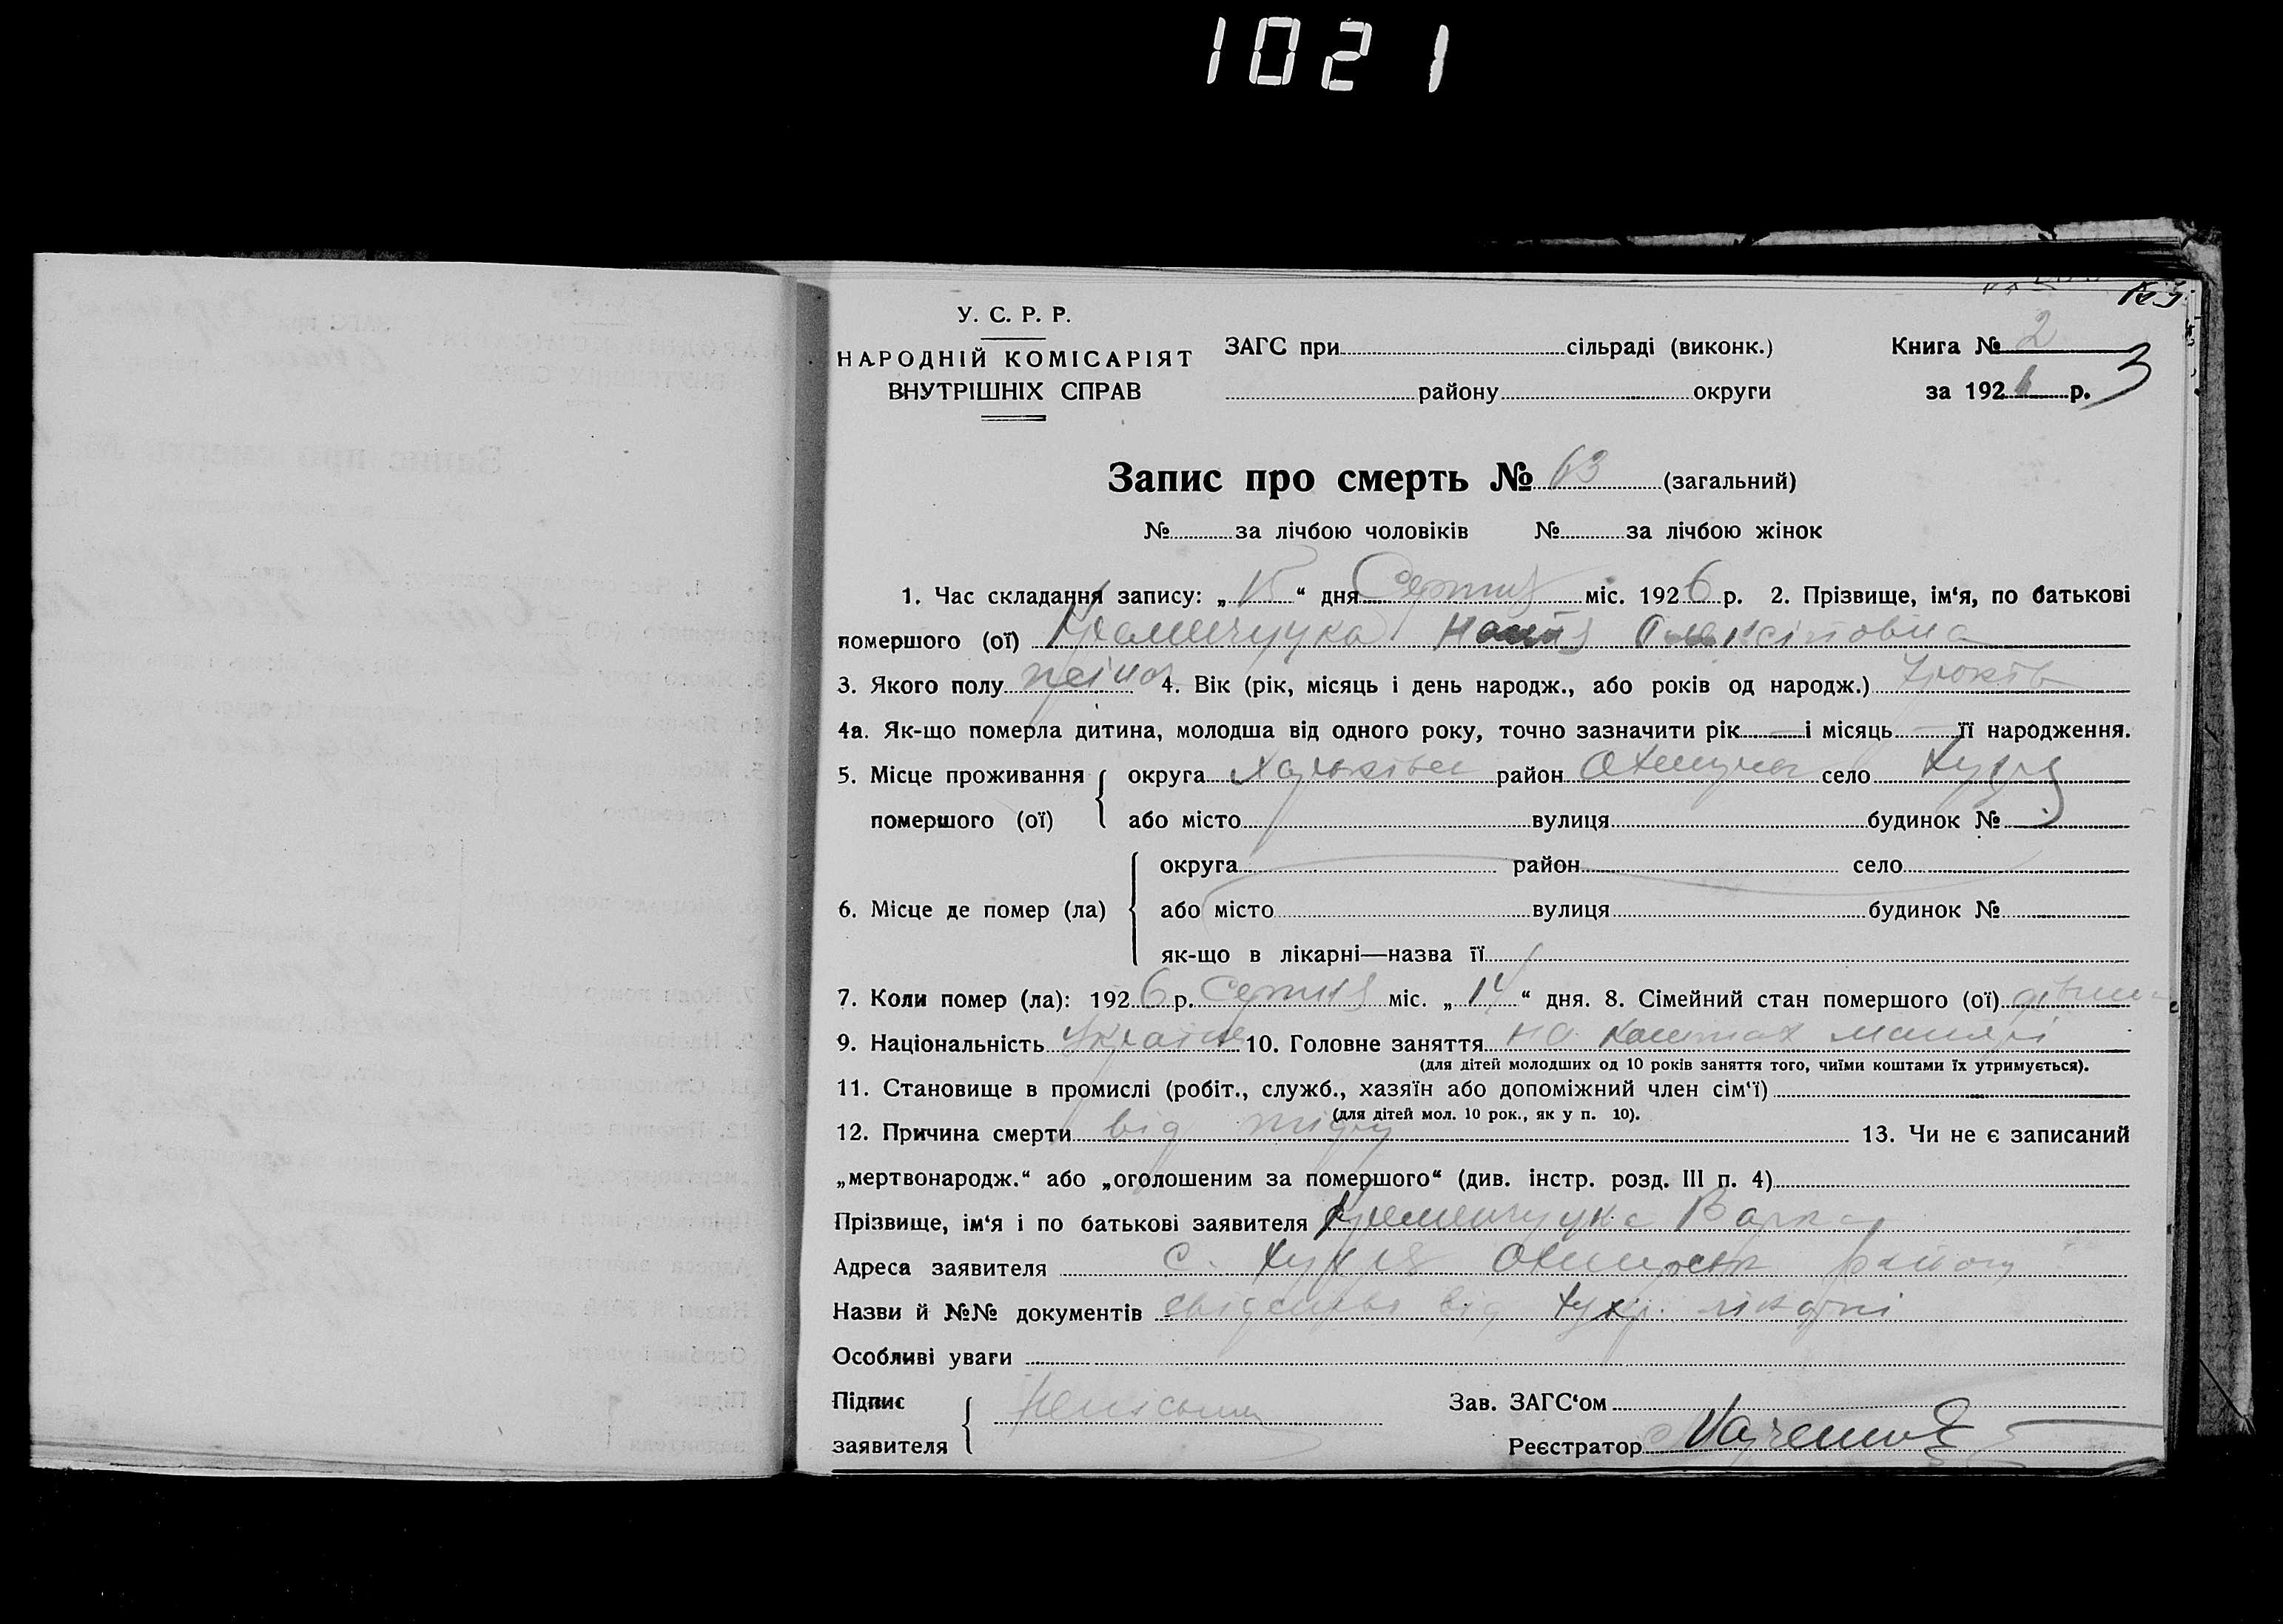 1021
У. С. Р. Р.
НАРОДНІЙ КОМІСАРІЯТ
ВНУТРІШНІХ СПРАВ
ЗАГС при сільраді (виконк.)
району округи
Книга № 2
за 1926 р.
3
Запис про смерть № 63 (загальний)
№ за лічбою чоловіків № за лічбою жінок
1. Час складання запису: „15“ дня Серпня міс. 1926 р. 2. Прізвище, ім‘я, по батькові
помершого (ої) Кременчуцка
3. Якого полу 4. Вік (рік, місяць і день народж., або років од народж.) років
4а. Як-що померла дитина, молодша від одного року, точно зазначити рік — і місяць — її народження.
5. Місце проживання округа Харьківськ район Охтирськ село Хухря
помершого (ої) або місто вулиця будинок №
округа район село
6. Місце де помер (ла) або місто вулиця будинок №
як-що в лікарні—назва її
7. Коли помер (ла): 1926 р. Серпня міс. „14“ дня. 8. Сімейний стан помершого (ої)
9. Національність Україн 10. Головне заняття на коштах матері
(для дітей молодших од 10 років заняття того, чиїми коштами їх утримується).
11. Становище в промислі (робіт., служб., хазяїн або допоміжний член сім‘ї)
(для дітей мол. 10 рок., як у п. 10).
12. Причина смерти від тифу 13. Чи не є записаний
„мертвонародж.“ або „оголошеним за помершого“ (див. інстр. розд. III п. 4)
Прізвище, ім‘я і по батькові заявителя Кременчуцка Варка
Адреса заявителя с. Хухря Охтирськ району
Назви й №№ документів від Хухр. лікарні
Особливі уваги
Підпис Неписьмен Зав. ЗАГС‘ом
заявителя Реєстратор